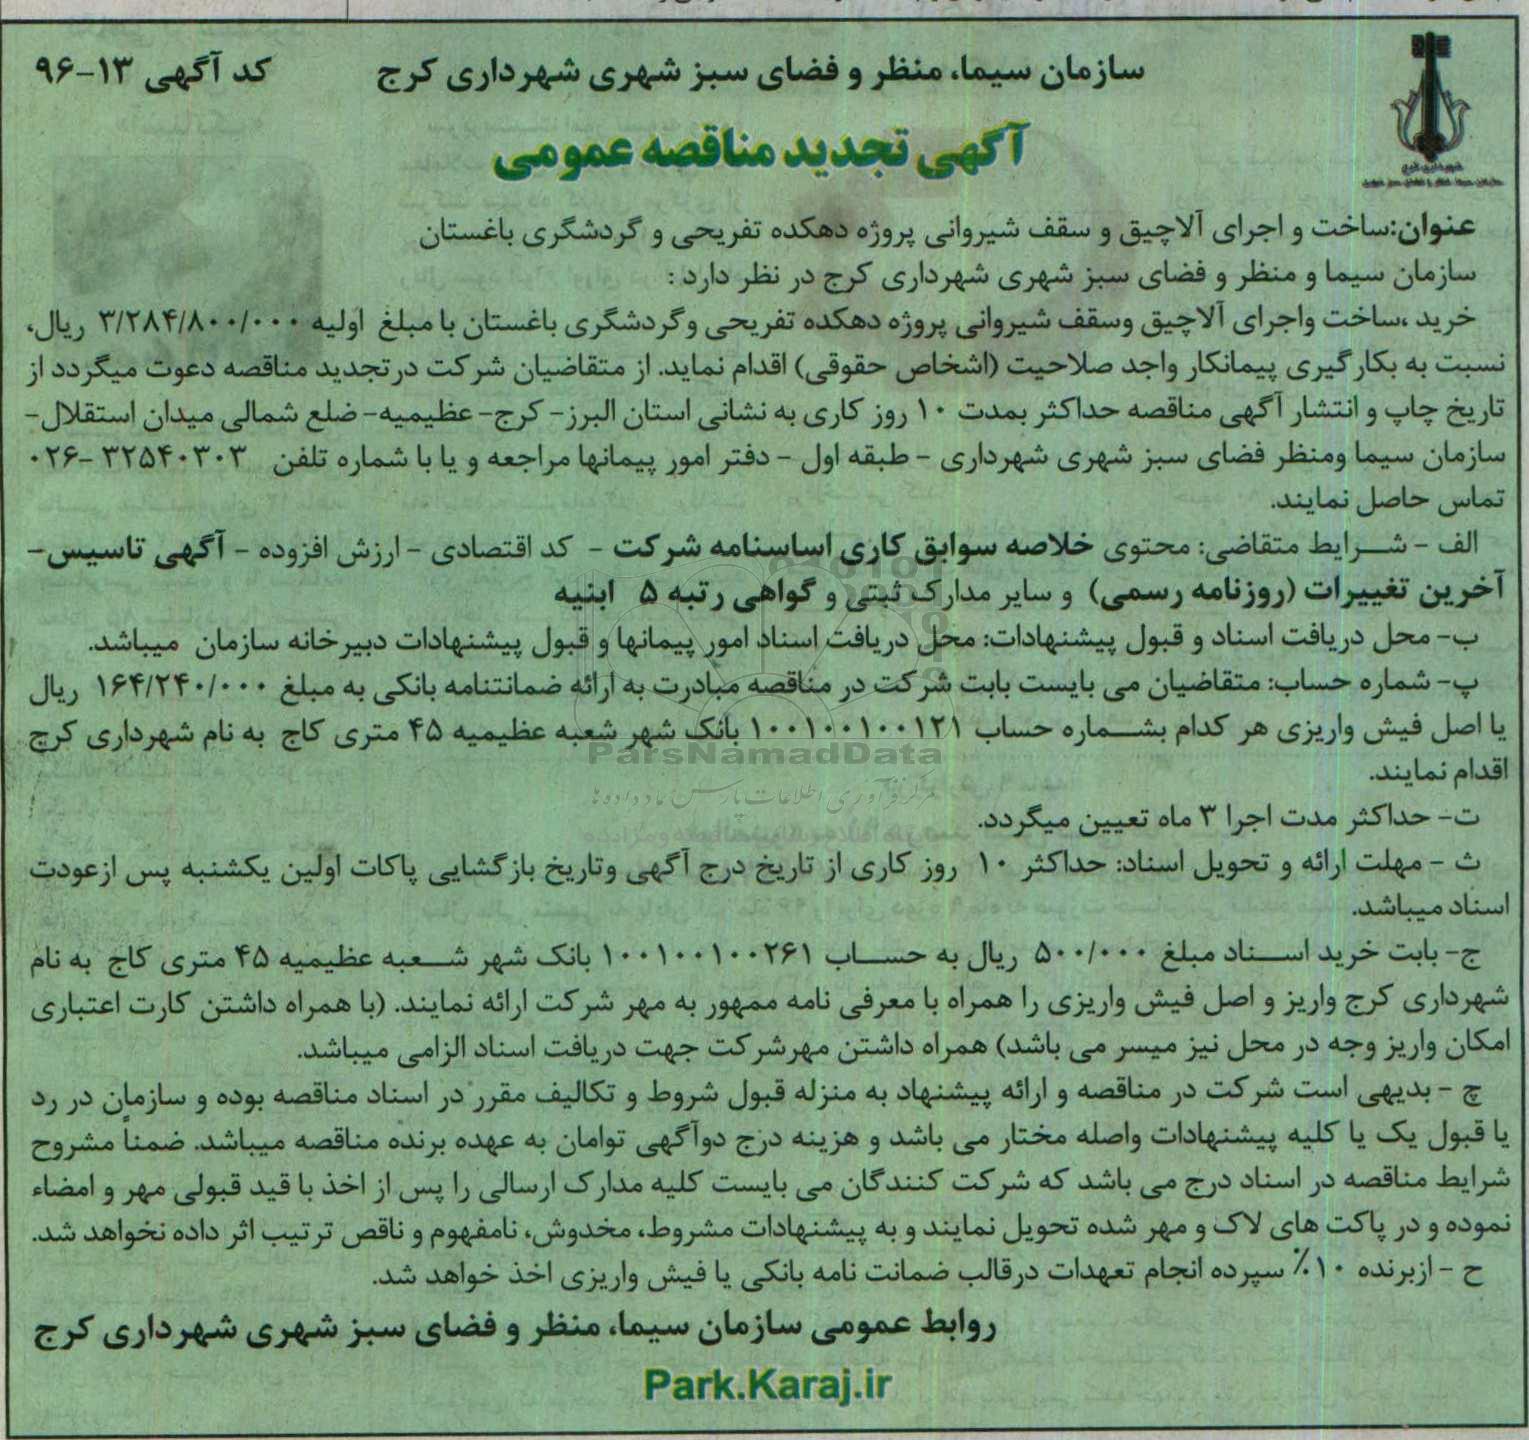 سازمان سیما، منظر و فضای سبز شهری شهرداری کرج
کد آگهی ۱۳-۹۶
شهرداری کرج
آگهی تجدید مناقصه عمومی
عنوان:ساخت و اجرای آلاچیق و سقف شیروانی پروژه دهکده تفریحی و گردشگری باغستان
سازمان سیما و منظر و فضای سبز شهری شهرداری کرج در نظر دارد :
خرید ،ساخت واجرای آلاچیق وسقف شیروانی پروژه دهکده تفریحی وگردشگری باغستان با مبلغ اولیه ۳/۲۸۴/۸۰۰/۰۰۰ ریال،
نسبت به بکارگیری پیمانکار واجد صلاحیت (اشخاص حقوقی) اقدام نماید. از متقاضیان شرکت درتجدید مناقصه دعوت میگردد از
تاریخ چاپ و انتشار آگهی مناقصه حداکثر بمدت ۱۰ روز کاری به نشانی استان البرز- کرج- عظیمیه- ضلع شمالی میدان استقلال-
سازمان سیما ومنظر فضای سبز شهری شهرداری - طبقه اول - دفتر امور پیمانها مراجعه و یا با شماره تلفن ۳۲۵۴۰۳۰۳ -۰۲۶
تماس حاصل نمایند.
الف - شرایط متقاضی: محتوی خلاصه سوابق کاری اساسنامه شرکت - کد اقتصادی - ارزش افزوده - آگهی تاسیس-
آخرین تغییرات (روزنامه رسمی) و سایر مدارک ثبتی و گواهی رتبه ۵ ابنیه
ب- محل دریافت اسناد و قبول پیشنهادات: محل دریافت اسناد امور پیمانها و قبول پیشنهادات دبیرخانه سازمان میباشد.
پ- شماره حساب: متقاضیان می بایست بابت شرکت در مناقصه مبادرت به ارائه ضمانتنامه بانکی به مبلغ ۱۶۴/۲۴۰/۰۰۰ ریال
یا اصل فیش واریزی هر کدام بشماره حساب ۱۰۰۱۰۰۱۰۰۱۲۱ بانک شهر شعبه عظیمیه ۴۵ متری کاج به نام شهرداری کرج
ParsNamadData
اقدام نمایند.
مرکز فرآوری اطلاعات پارس نماد داده ها
ت- حداکثر مدت اجرا ۳ ماه تعیین میگردد.
ث - مهلت ارائه و تحویل اسناد: حداکثر ۱۰ روز کاری از تاریخ درج آگهی وتاریخ بازگشایی پاکات اولین یکشنبه پس ازعودت
اسناد میباشد.
ج- بابت خرید اسناد مبلغ ۵۰۰/۰۰۰ ریال به حساب ۱۰۰۱۰۰۱۰۰۲۶۱ بانک شهر شعبه عظیمیه ۴۵ متری کاج به نام
شهرداری کرج واریز و اصل فیش واریزی را همراه با معرفی نامه ممهور به مهر شرکت ارائه نمایند. (با همراه داشتن کارت اعتباری
امکان واریز وجه در محل نیز میسر می باشد) همراه داشتن مهرشرکت جهت دریافت اسناد الزامی میباشد.
چ - بدیهی است شرکت در مناقصه و ارائه پیشنهاد به منزله قبول شروط و تکالیف مقرر در اسناد مناقصه بوده و سازمان در رد
یا قبول یک یا کلیه پیشنهادات واصله مختار می باشد و هزینه درج دوآگهی توامان به عهده برنده مناقصه میباشد. ضمناً مشروح
شرایط مناقصه در اسناد درج می باشد که شرکت کنندگان می بایست کلیه مدارک ارسالی را پس از اخذ با قید قبولی مهر و امضاء
نموده و در پاکت های لاک و مهر شده تحویل نمایند و به پیشنهادات مشروط، مخدوش، نامفهوم و ناقص ترتیب اثر داده نخواهد شد.
ح - ازبرنده ۱۰٪ سپرده انجام تعهدات درقالب ضمانت نامه بانکی یا فیش واریزی اخذ خواهد شد.
روابط عمومی سازمان سیما، منظر و فضای سبز شهری شهرداری کرج
Park.Karaj.ir